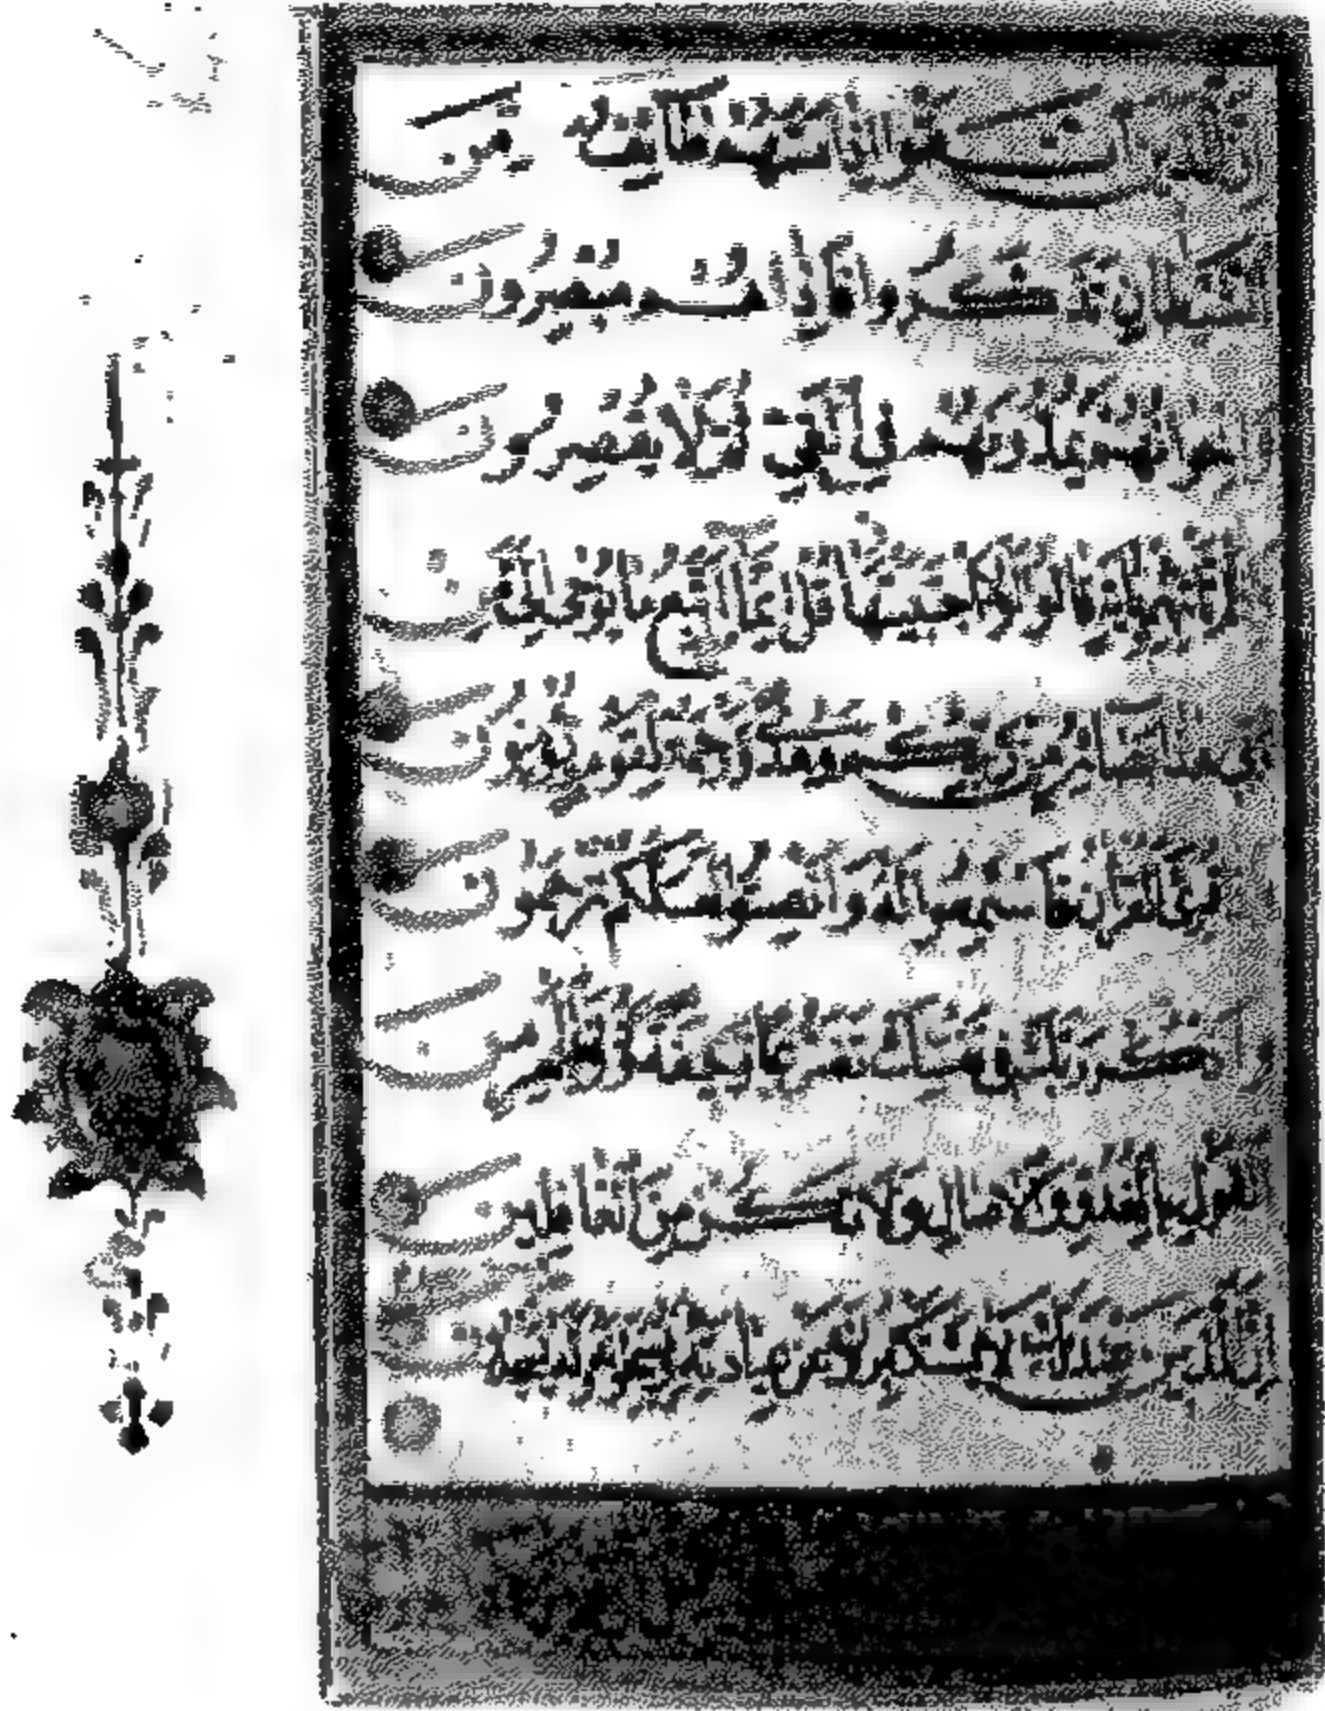 إِنَّ الَّذِينَ اتَّقَوْا إِذَا مَسَّهُمْ طَائِفٌ مِنَ
الشَّيْطَانِ تَذَكَّرُوا فَإِذَا هُمْ مُبْصِرُونَ
وَإِخْوَانُهُمْ يَمُدُّونَهُمْ فِي الْغَيِّ ثُمَّ لَا يُقْصِرُونَ
وَإِذَا لَمْ تَأْتِهِمْ بِآيَةٍ قَالُوا لَوْلَا اجْتَبَيْتَهَا قُلْ إِنَّمَا أَتَّبِعُ مَا يُوحَى إِلَيَّ مِنْ
رَبِّي هَذَا بَصَائِرُ مِنْ رَبِّكُمْ وَهُدًى وَرَحْمَةٌ لِقَوْمٍ يُؤْمِنُونَ
وَإِذَا قُرِئَ الْقُرْآنُ فَاسْتَمِعُوا لَهُ وَأَنْصِتُوا لَعَلَّكُمْ تُرْحَمُونَ
وَاذْكُرْ رَبَّكَ فِي نَفْسِكَ تَضَرُّعًا وَخِيفَةً وَدُونَ الْجَهْرِ مِنَ
الْقَوْلِ بِالْغُدُوِّ وَالْآصَالِ وَلَا تَكُنْ مِنَ الْغَافِلِينَ
إِنَّ الَّذِينَ عِنْدَ رَبِّكَ لَا يَسْتَكْبِرُونَ عَنْ عِبَادَتِهِ وَيُسَبِّحُونَهُ وَلَهُ يَسْجُدُونَ